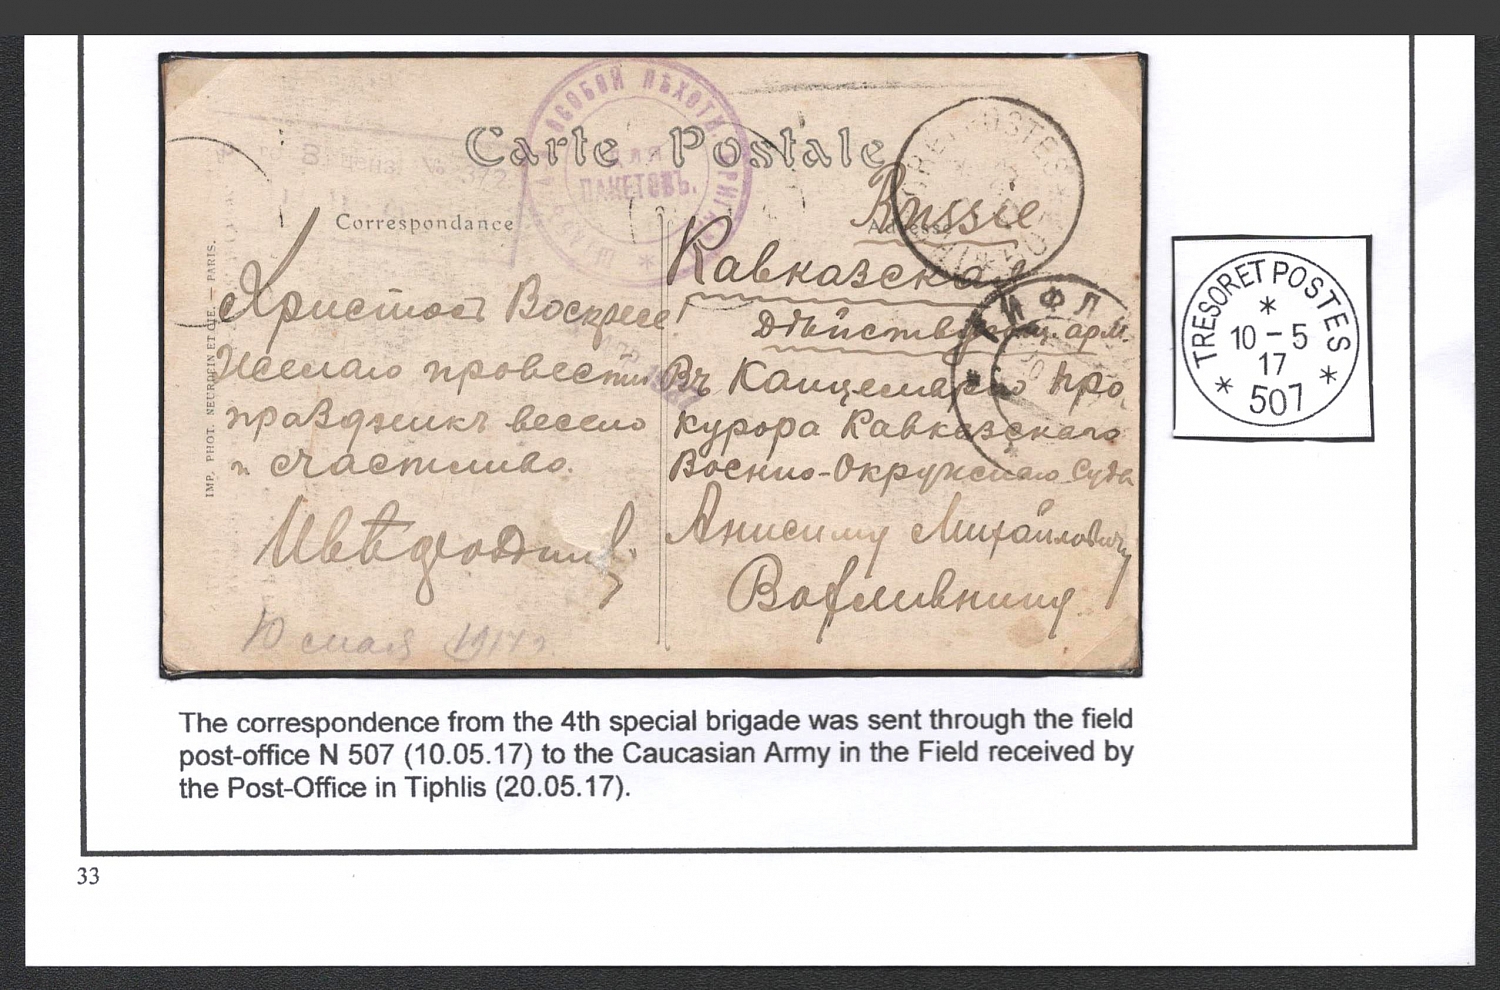 ОСОБОЙ ПѢХОТН. БРИГАДЫ
для
ПАКЕТОВЪ.
Carte Postale
Correspondance
Adresse
TRESOR ET POSTES
507
ТИФЛ
IMP. PHOT. NEURDEIN ET CIE. — PARIS.
Христосъ Воскресе!
Желаю провести
праздникъ весело
и счастливо.
10 мая 1917 г.
Russie
Кавказская
Дѣйствующ. арм.
Въ Канцелярію Про
курора Кавказскаго
Военно-Окружнаго Суда
Анисиму Михайловичу
TRESOR ET POSTES
10 – 5
17
507
The correspondence from the 4th special brigade was sent through the field
post-office N 507 (10.05.17) to the Caucasian Army in the Field received by
the Post-Office in Tiphlis (20.05.17).
33